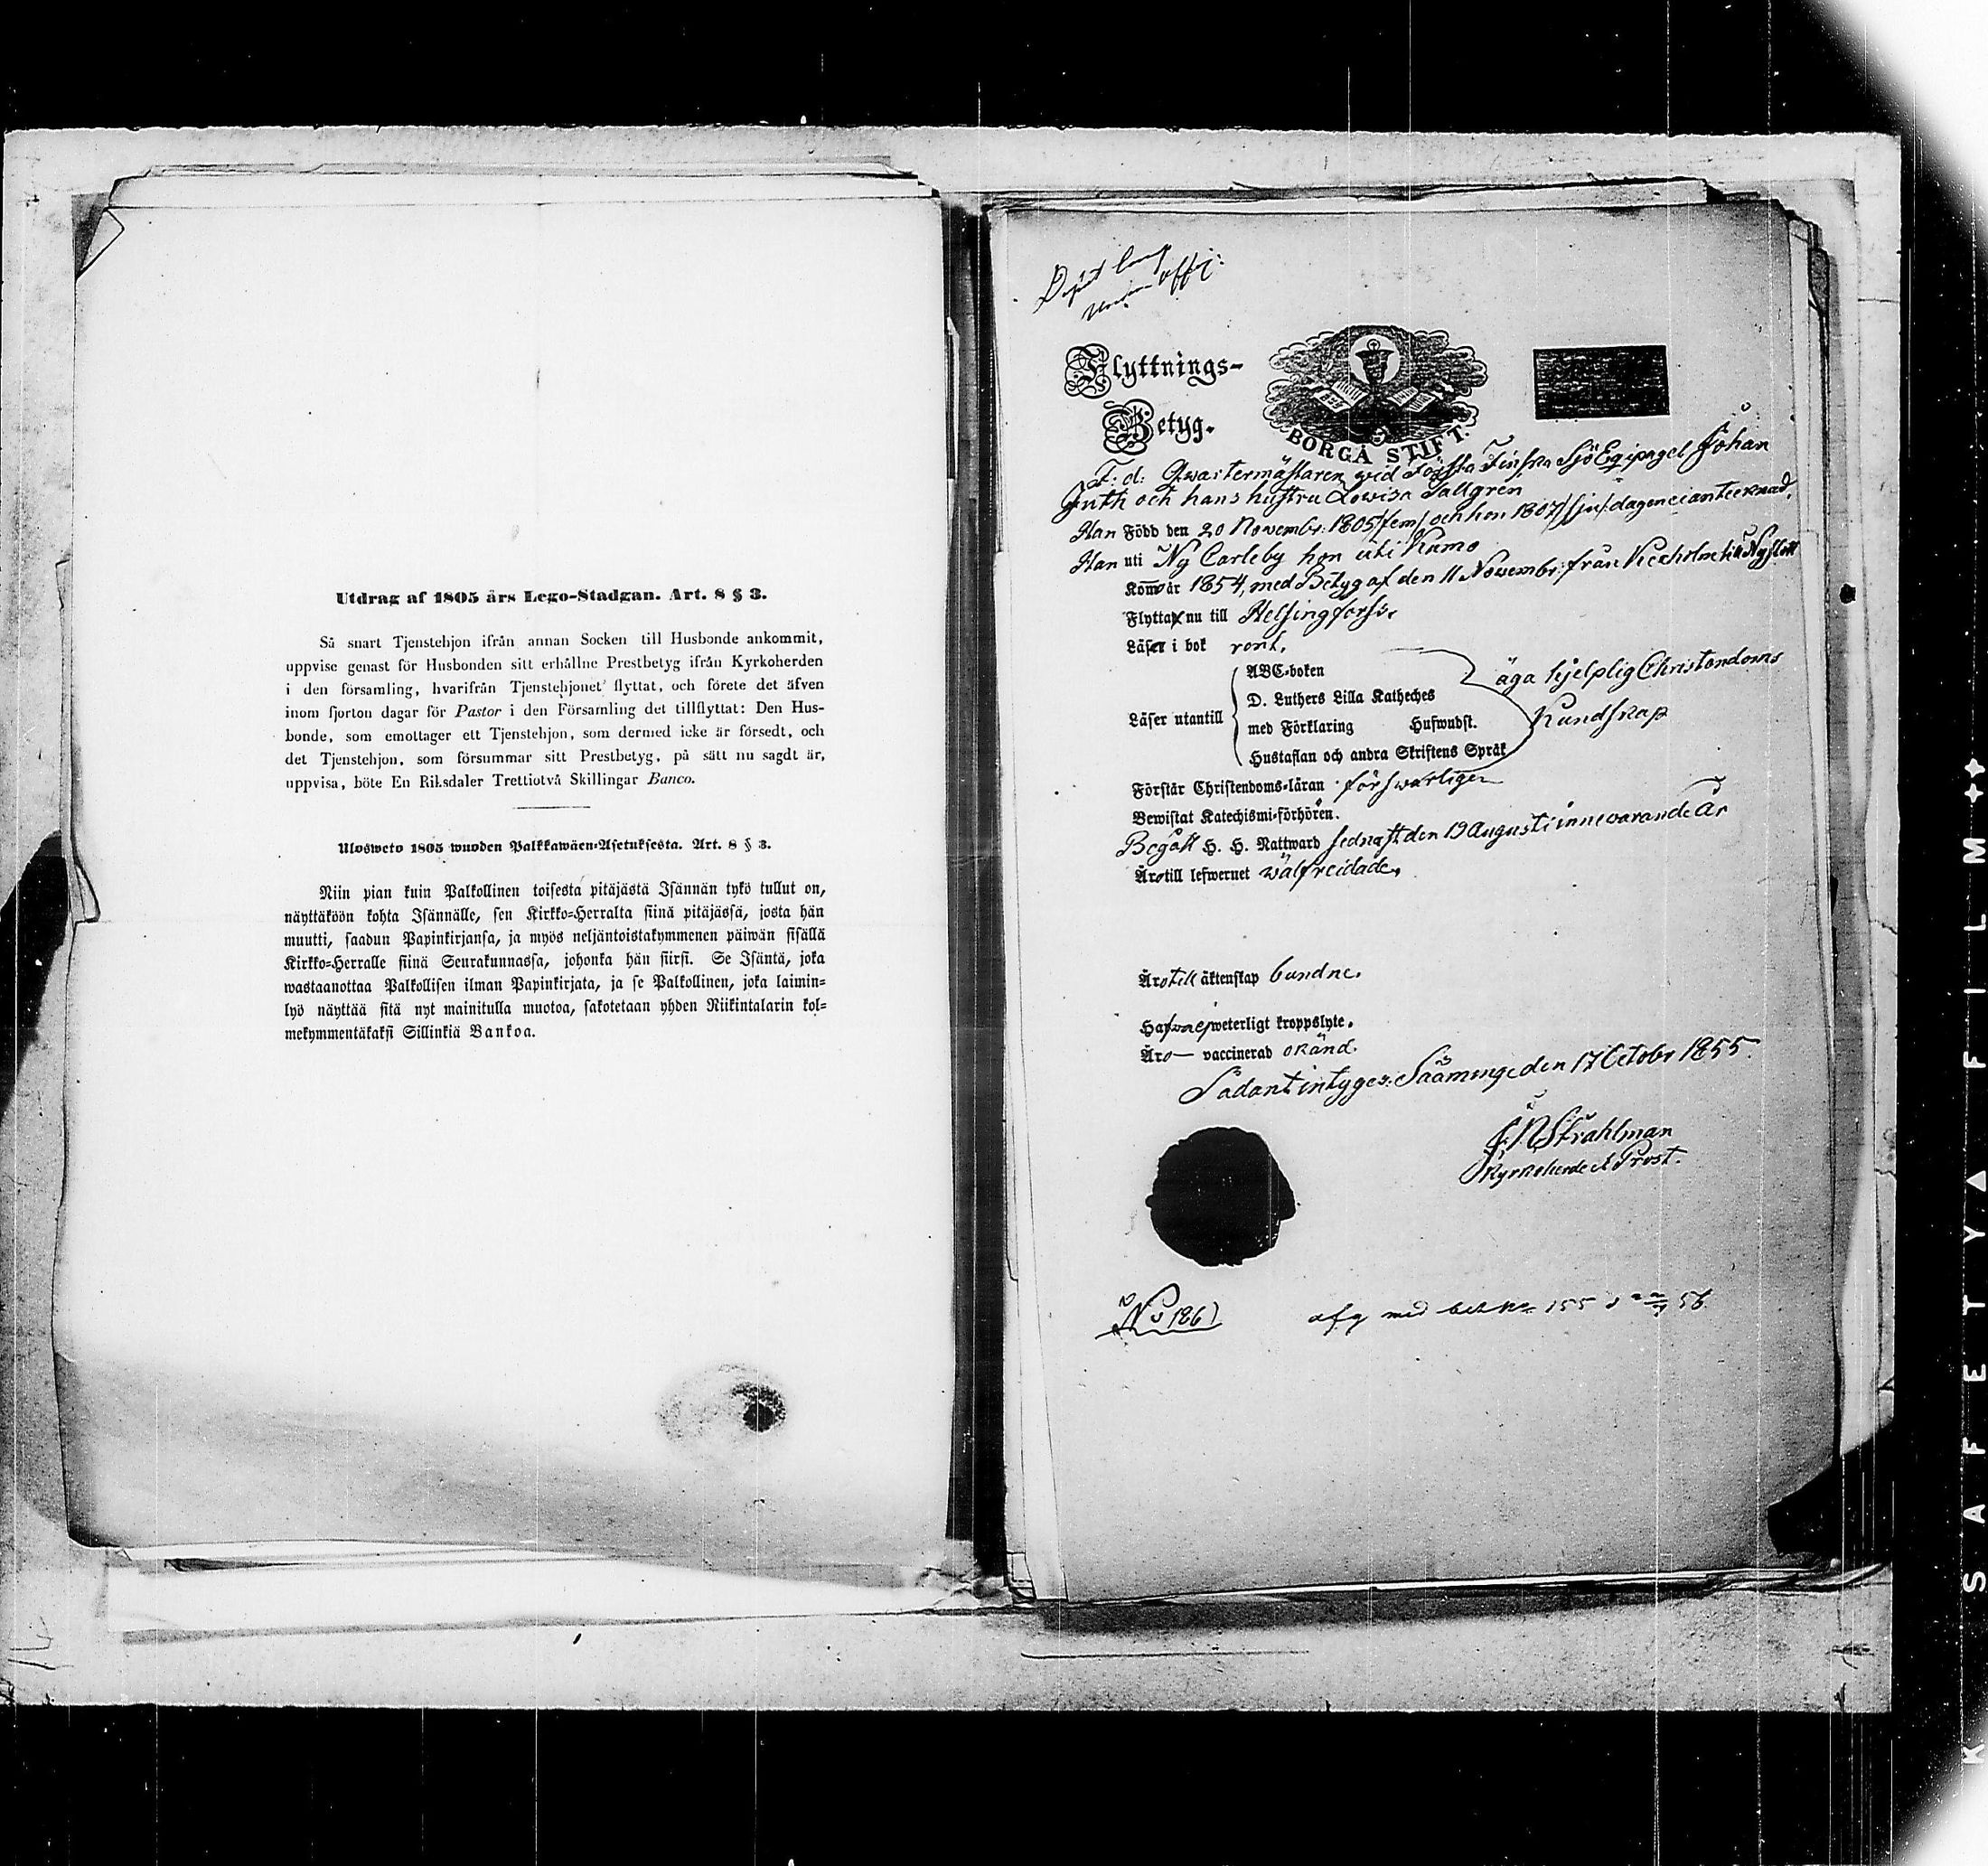 Utdrag af 1805 års Lego-Stadgan. Art. 8 § 3.
Så snart Tjenstehjon ifrån annan Socken till Husbonde ankommit,
uppvise genast för Husbonden sitt erhållne Prestbetyg ifrån Kyrkoherden
i den församling, hvarifrån Tjenstehjonet flyttat, och förete det äfven
inom fjorton dagar för Pastor i den Församling det tillflyttat: Den Hus-
bonde, som emottager ett Tjenstehjon, som dermed icke är försedt, och
det Tjenstehjon, som försummar sitt Prestbetyg, på sätt nu sagdt är,
uppvisa, böte En Riksdaler Trettiotvå Skillingar Banco.
Ulosweto 1805 wuoden Palkkawäen-Asetuksesta. Art. 8 § 3.
Niin pian kuin Palkollinen toisesta pitäjästä Isännän tykö tullut on,
näyttäköön kohta Isännälle, sen Kirkko-Herralta siinä pitäjässä, josta hän
muutti, saadun Papinkirjansa, ja myös neljäntoistakymmenen päiwän sisällä
Kirkko-Herralle siinä Seurakunnassa, johonka hän siirsi. Se Isäntä, joka
wastaanottaa Palkollisen ilman Papinkirjata, ja se Palkollinen, joka laimin-
lyö näyttää sitä nyt mainitulla muotoa, sakotetaan yhden Riikintalarin kol-
mekymmentäkaksi Sillinkiä Bankoa.
Flyttnings-
Betyg.
BORGÅ STIFT.
F: d: Qwartermästaren wid Första Finska Sjö Eqipaget Johan
Juth och hans hustru Lowisa Tallgren
Han Född den 20 Novembr: 1805/fem/ och hon 1807/sju/ dagen ei antecknad,
Han uti Ny Carleby hon uti Kumo
Kom år 1854, med Betyg af den 11 Novembr: från Kexholm till Nyslott
Flytta nu till Helsingfors.
Läser i bok rent,
ABC-boken
D. Luthers Lilla Katheches
Läser utantill med Förklaring Hufwudst.
Hustaflan och andra Skriftens Språk
äga hjelplig Christendoms
Kundskap
Förstår Christendoms-läran förswarligen
Bewistat Katechismi-förhören.
Begått H. H. Nattward sednast den 19 Augusti innevarande År
Äro till lefwernet wälfreidade.
Äro till äktenskap bundne.
Hafwa ej weterligt kroppslyte.
Äro — vaccinerad okänd.
Sådant intyges: Sääminge den 17 Octobr 1855.
J. N. Strahlman
Kyrkoherde et Prost.
afg med bet No 155 56.
SAFETY FILM